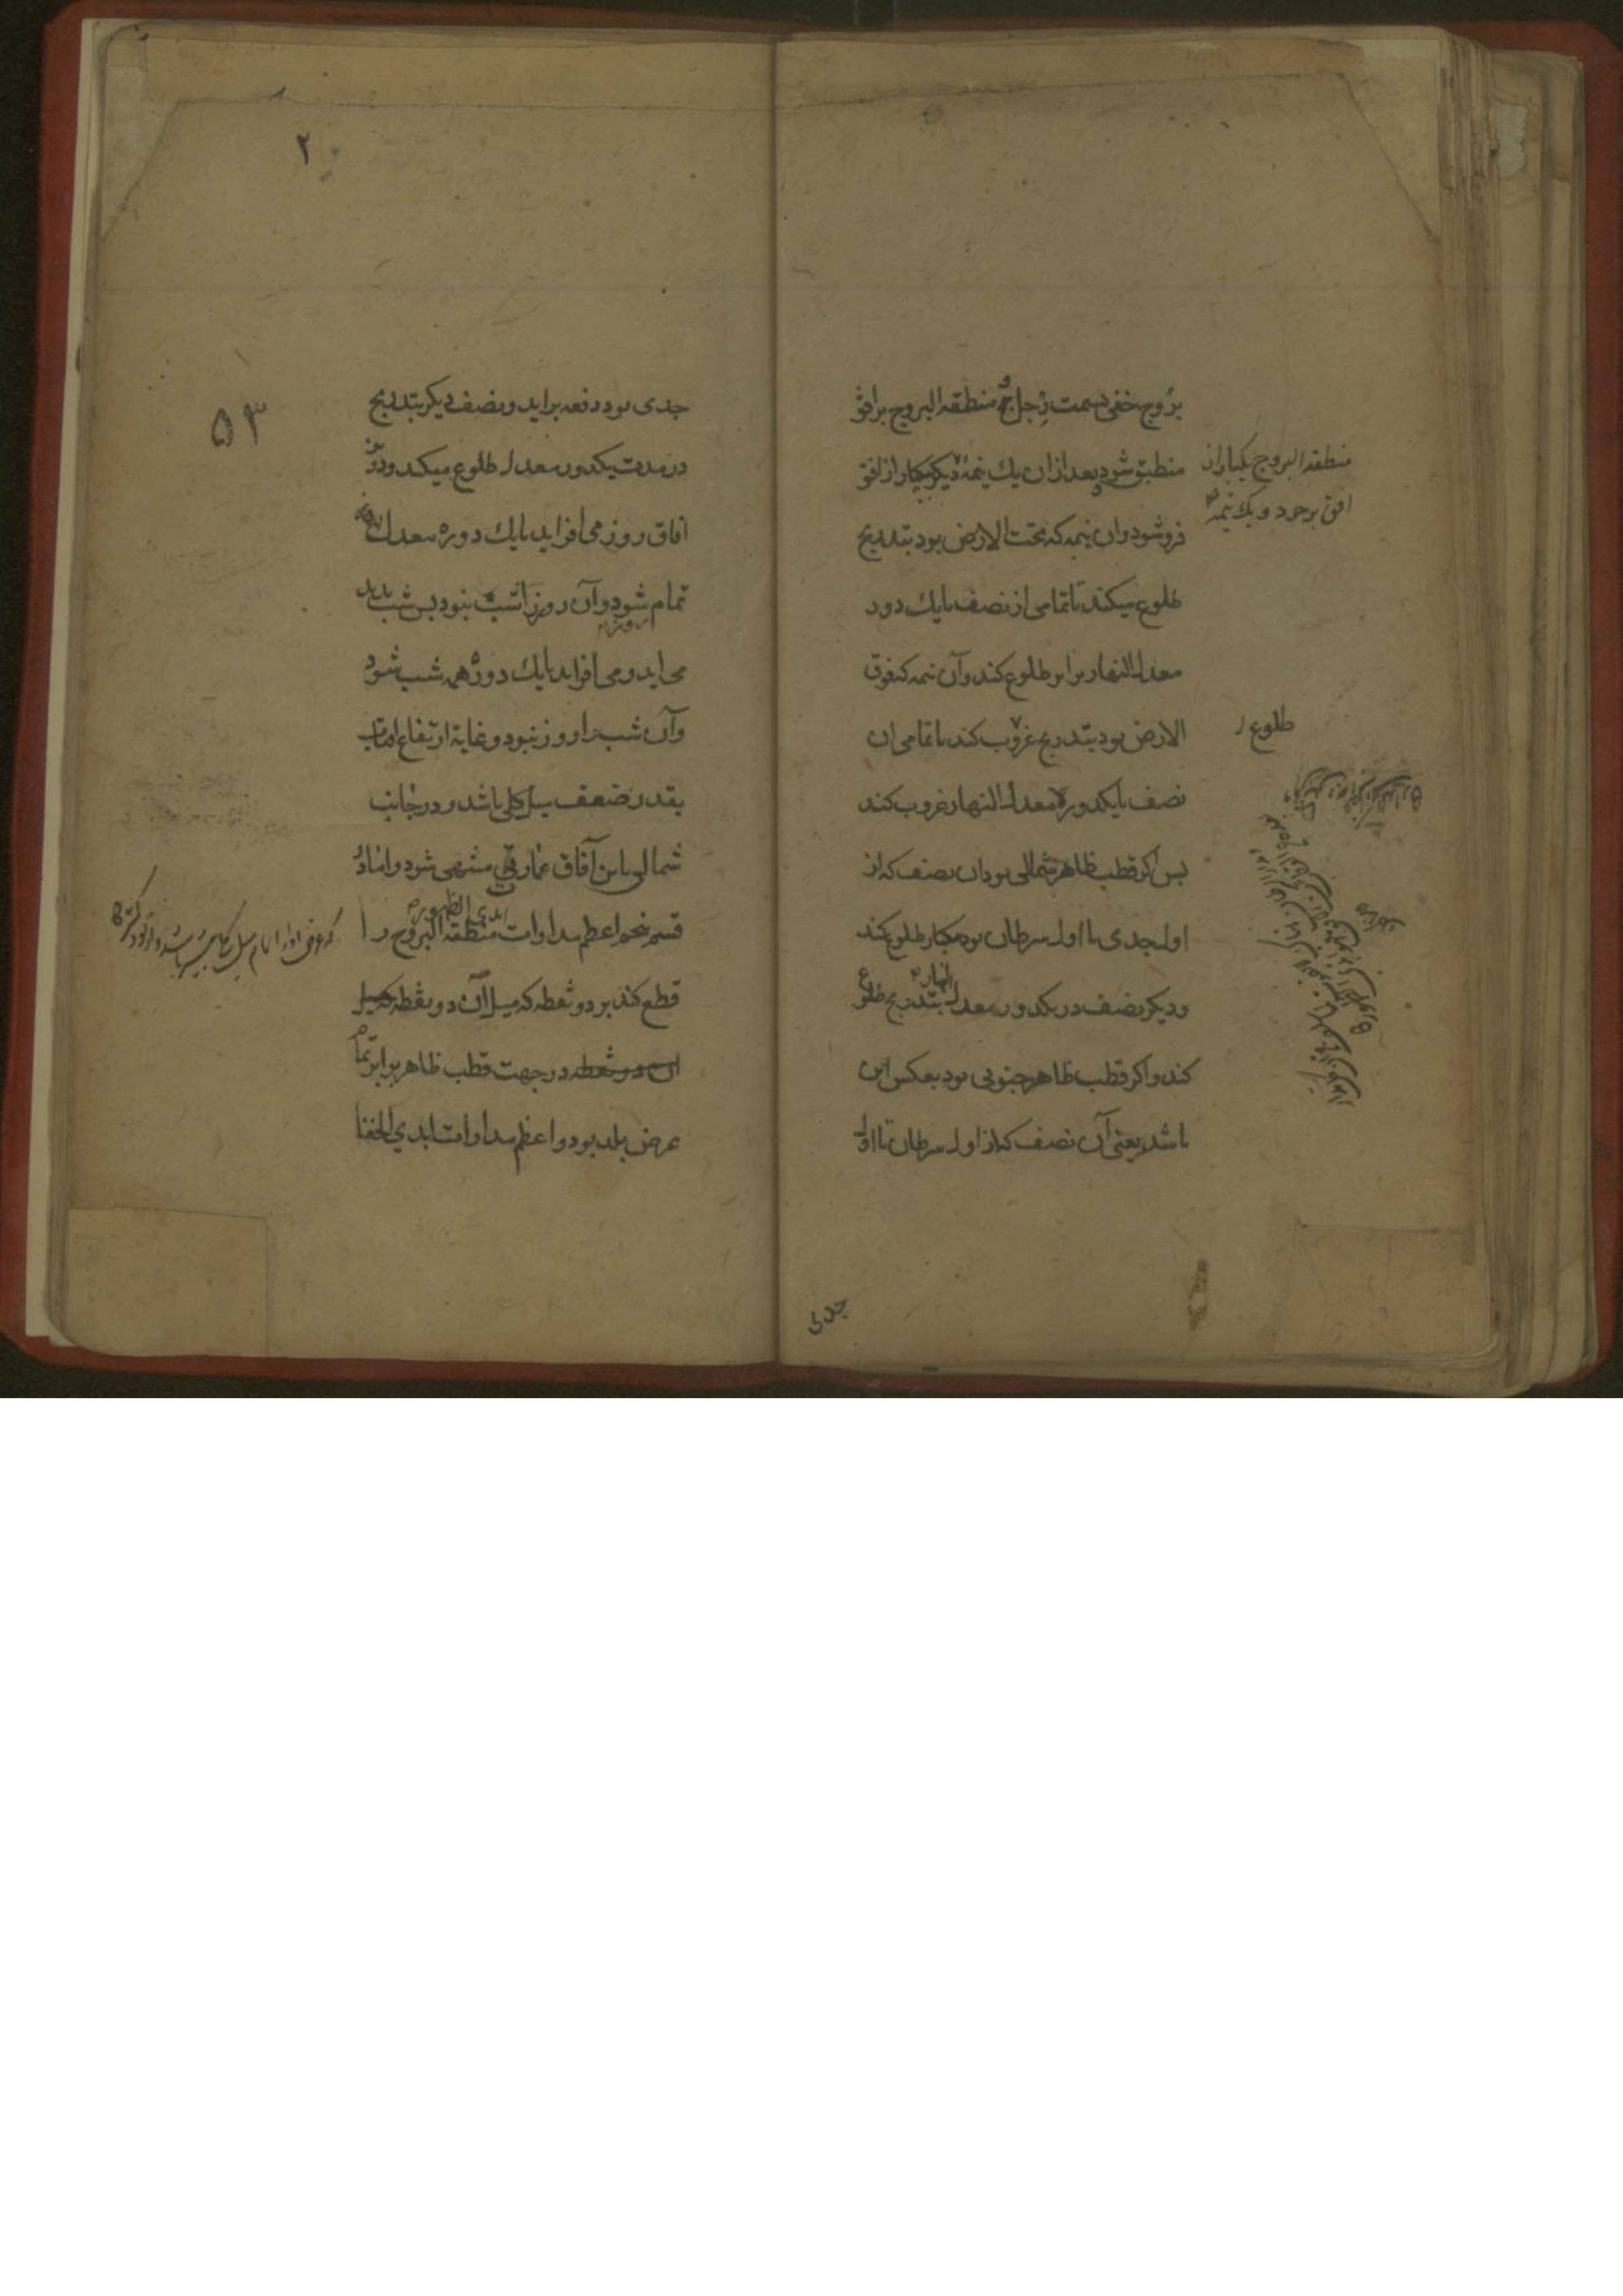 بروج خفی بسمت رجل و منطقة البروج بر افق
منطبق شود و بعد از آن یک نیمه دیگر یکبار از افق
فرو شود و ان نیمه که تحت الارض بود بتدریج
طلوع میکند تا تمامی از نصف بایک دور
معدل النهار برابر طلوع کند و آن نیمه که فوق
الارض بود بتدریج غروب کند تا تمامی ان
نصف بایکدوره معدل النهار غروب کند
پس اکر قطب ظاهر شمالی بود ان نصف که از
اول جدی تا اول سرطان بود یکبار طلوع کند
و دیکر نصف در یکدور معدل النهار بتدریج طلوع
کند و اکر قطب ظاهر جنوبی بود بعکس این
باشد یعنی آن نصف که از اول سرطان تا اول
منطقة البروج یکبار از
افق برخیزد و یک نیمه
طلوع
جدی
۲
۵۳
جدی بود دفعه براید و نصف دیکر بتدریج
در مدت یکدور معدل طلوع میکند و درین
افاق روز می افزاید تا یک دوره معدل
تمام شود و آن روز را شب نبود پس شب پدید
می اید و می افزاید تا یک دوره همه شب شود
و آن شب را روز نبود و غایة ارتفاع افتاب
بقدر ضعف میل کلی باشد و در جانب
شمالی باین آفاق عمارت منتهی شود و اما در
قسم پنجم اعظم مدارات ابدی الظهور منطقة البروج را
قطع کند بر دو نقطه که میل آن دو نقطه که میل
ان دو نقطه در جهت قطب ظاهر برابر تمام
عرض بلد بود و اعظم مدارات ابدی الخفا